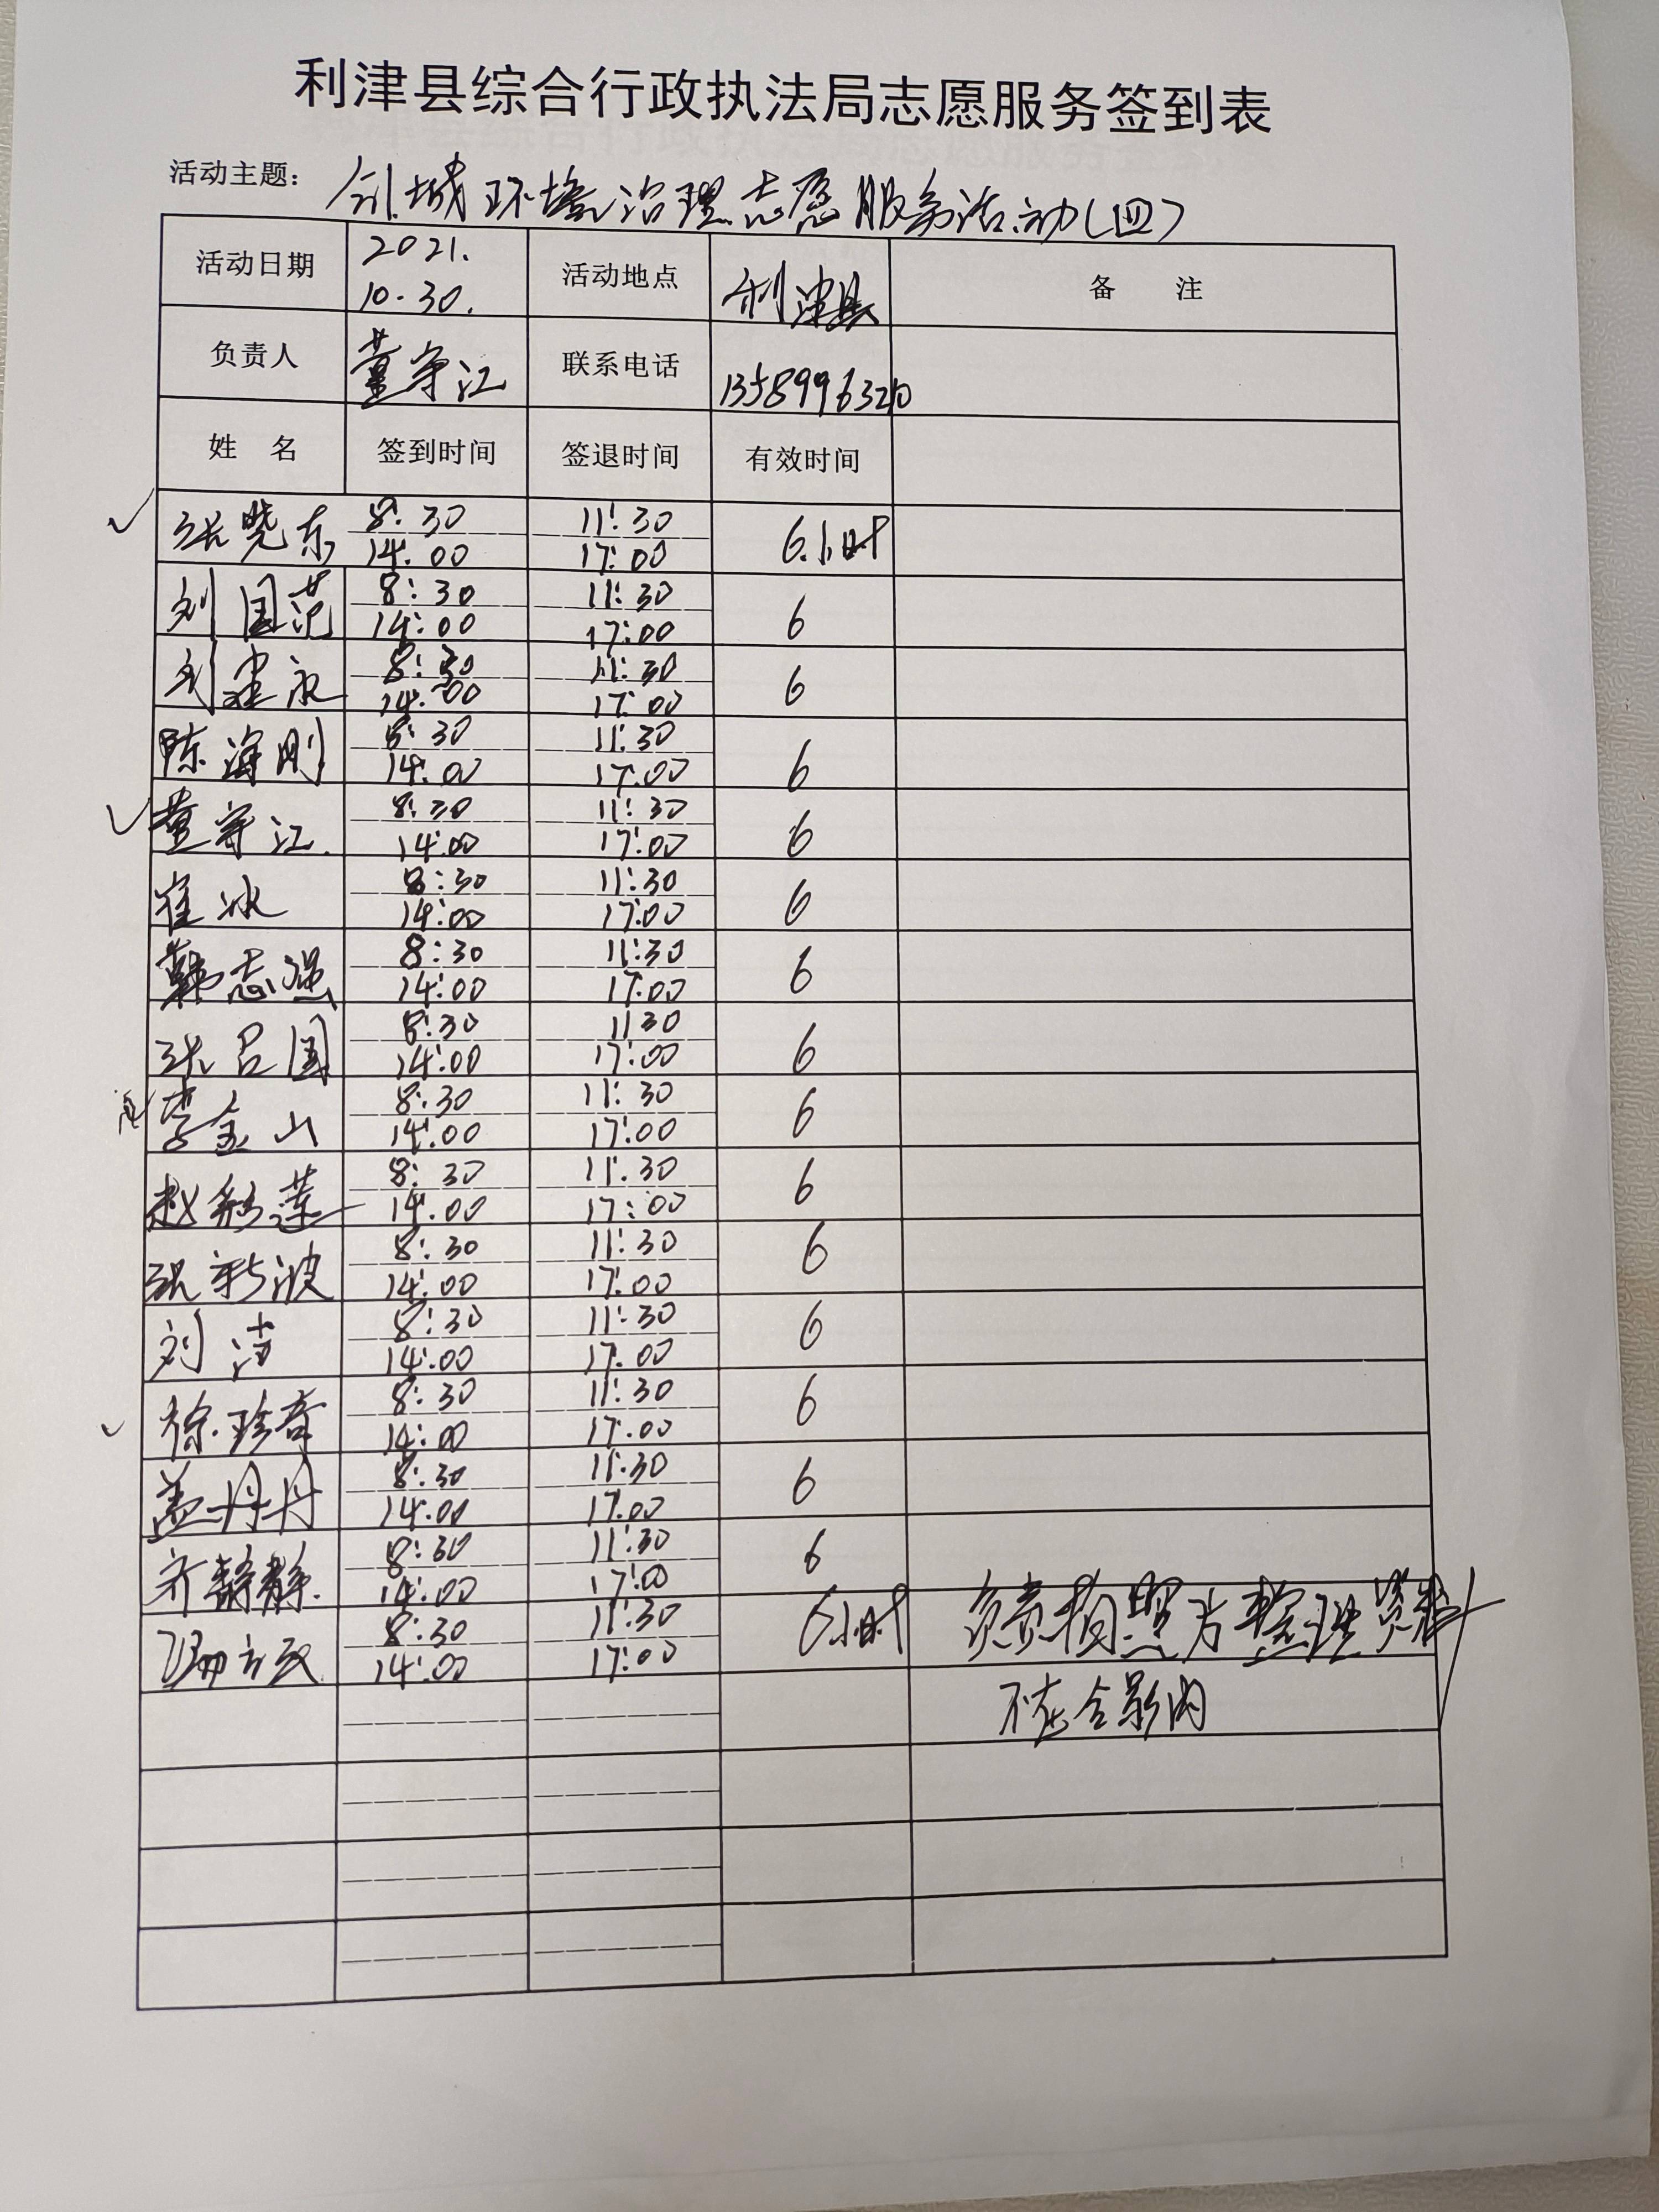 利津县综合行政执法局志愿服务签到表
活动主题: 创城环境治理志愿服务活动(四)
活动日期 2021.10.30. 活动地点 利津县 备 注
负责人 董守江 联系电话 13589963210
姓 名 签到时间 签退时间 有效时间
张晓东 8:30 11:30 6小时
14:00 17:00
刘国范 8:30 11:30 6
14:00 17:00
刘建永 8:30 11:30 6
14:00 17:00
陈海刚 8:30 11:30 6
14:00 17:00
董守江. 8:30 11:30 6
14:00 17:00
崔冰 8:30 11:30 6
14:00 17:00
韩志强 8:30 11:30 6
14:00 17:00
张召国 8:30 11:30 6
14:00 17:00
李金山 8:30 11:30 6
14:00 17:00
赵彩莲 8:30 11:30 6
14:00 17:00
张新波 8:30 11:30 6
14:00 17:00
刘洁 8:30 11:30 6
14:00 17:00
徐珍奇 8:30 11:30 6
14:00 17:00
盖丹丹 8:30 11:30 6
14:00 17:00
齐静静. 8:30 11:30 6
14:00 17:00
8:30 11:30 6小时 负责拍照片整理资料
14:00 17:00
不在合影内